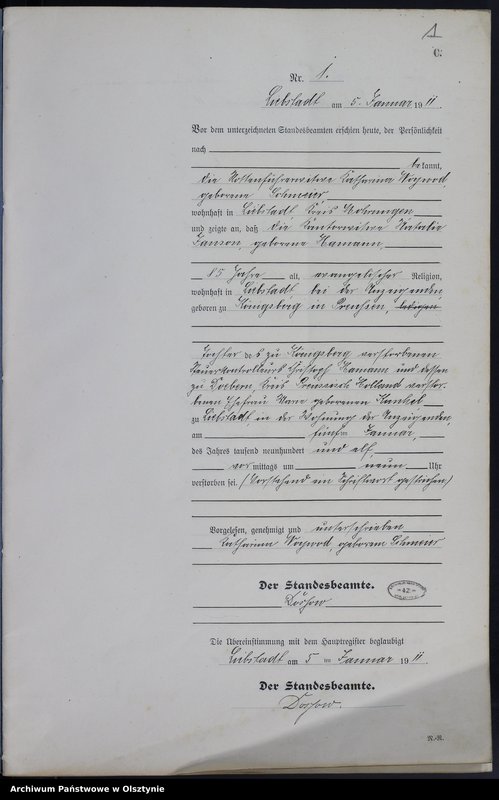 1
C.
Nr. 1.
Liebstadt am 5. Januar 1911.
Vor dem unterzeichneten Standesbeamten erschien heute, der Persönlichkeit
nach
bekannt,
die Rottenführerwitwe Katharina Woywod,
geborene Schmeier,
wohnhaft in Liebstadt, Kreis Mohrungen
und zeigte an, daß die Kantorwitwe Natalie
Janson, geborene Hamann,
85 Jahre alt, evangelischer Religion,
wohnhaft in Liebstadt bei der Anzeigenden,
geboren zu Königsberg in Preußen, ledigen
Tochter des zu Königsberg verstorbenen
Steuerkontrolleurs Christoph Hamann und dessen
zu Doebern Kreis Preussisch Holland verstor-
benen Ehefrau geborenen
zu Liebstadt, in der Wohnung der Anzeigenden,
am fünften Januar,
des Jahres tausend neunhundert und elf,
vormittags um neun Uhr
verstorben sei. (Vorstehend ein Schriftwort gestrichen)
Vorgelesen, genehmigt und unterschrieben
Katharina Woywod, geborene Schmeier
Der Standesbeamte.
Die Übereinstimmung mit dem Hauptregister beglaubigt
Liebstadt am 5 ten Januar 1911.
Der Standesbeamte.
R.-R.
Archiwum Państwowe w Olsztynie